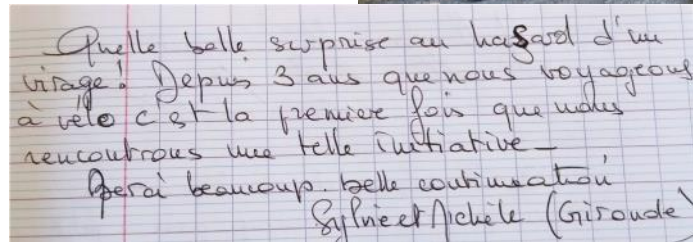 Quelle belle surprise au hasard d'un
virage! Depuis 3 ans que nous voyageons
à vélo c'est la première fois que nous
rencontrons une telle initiative_
Merci beaucoup. belle continuation
Sylvie et Michèle (Gironde)